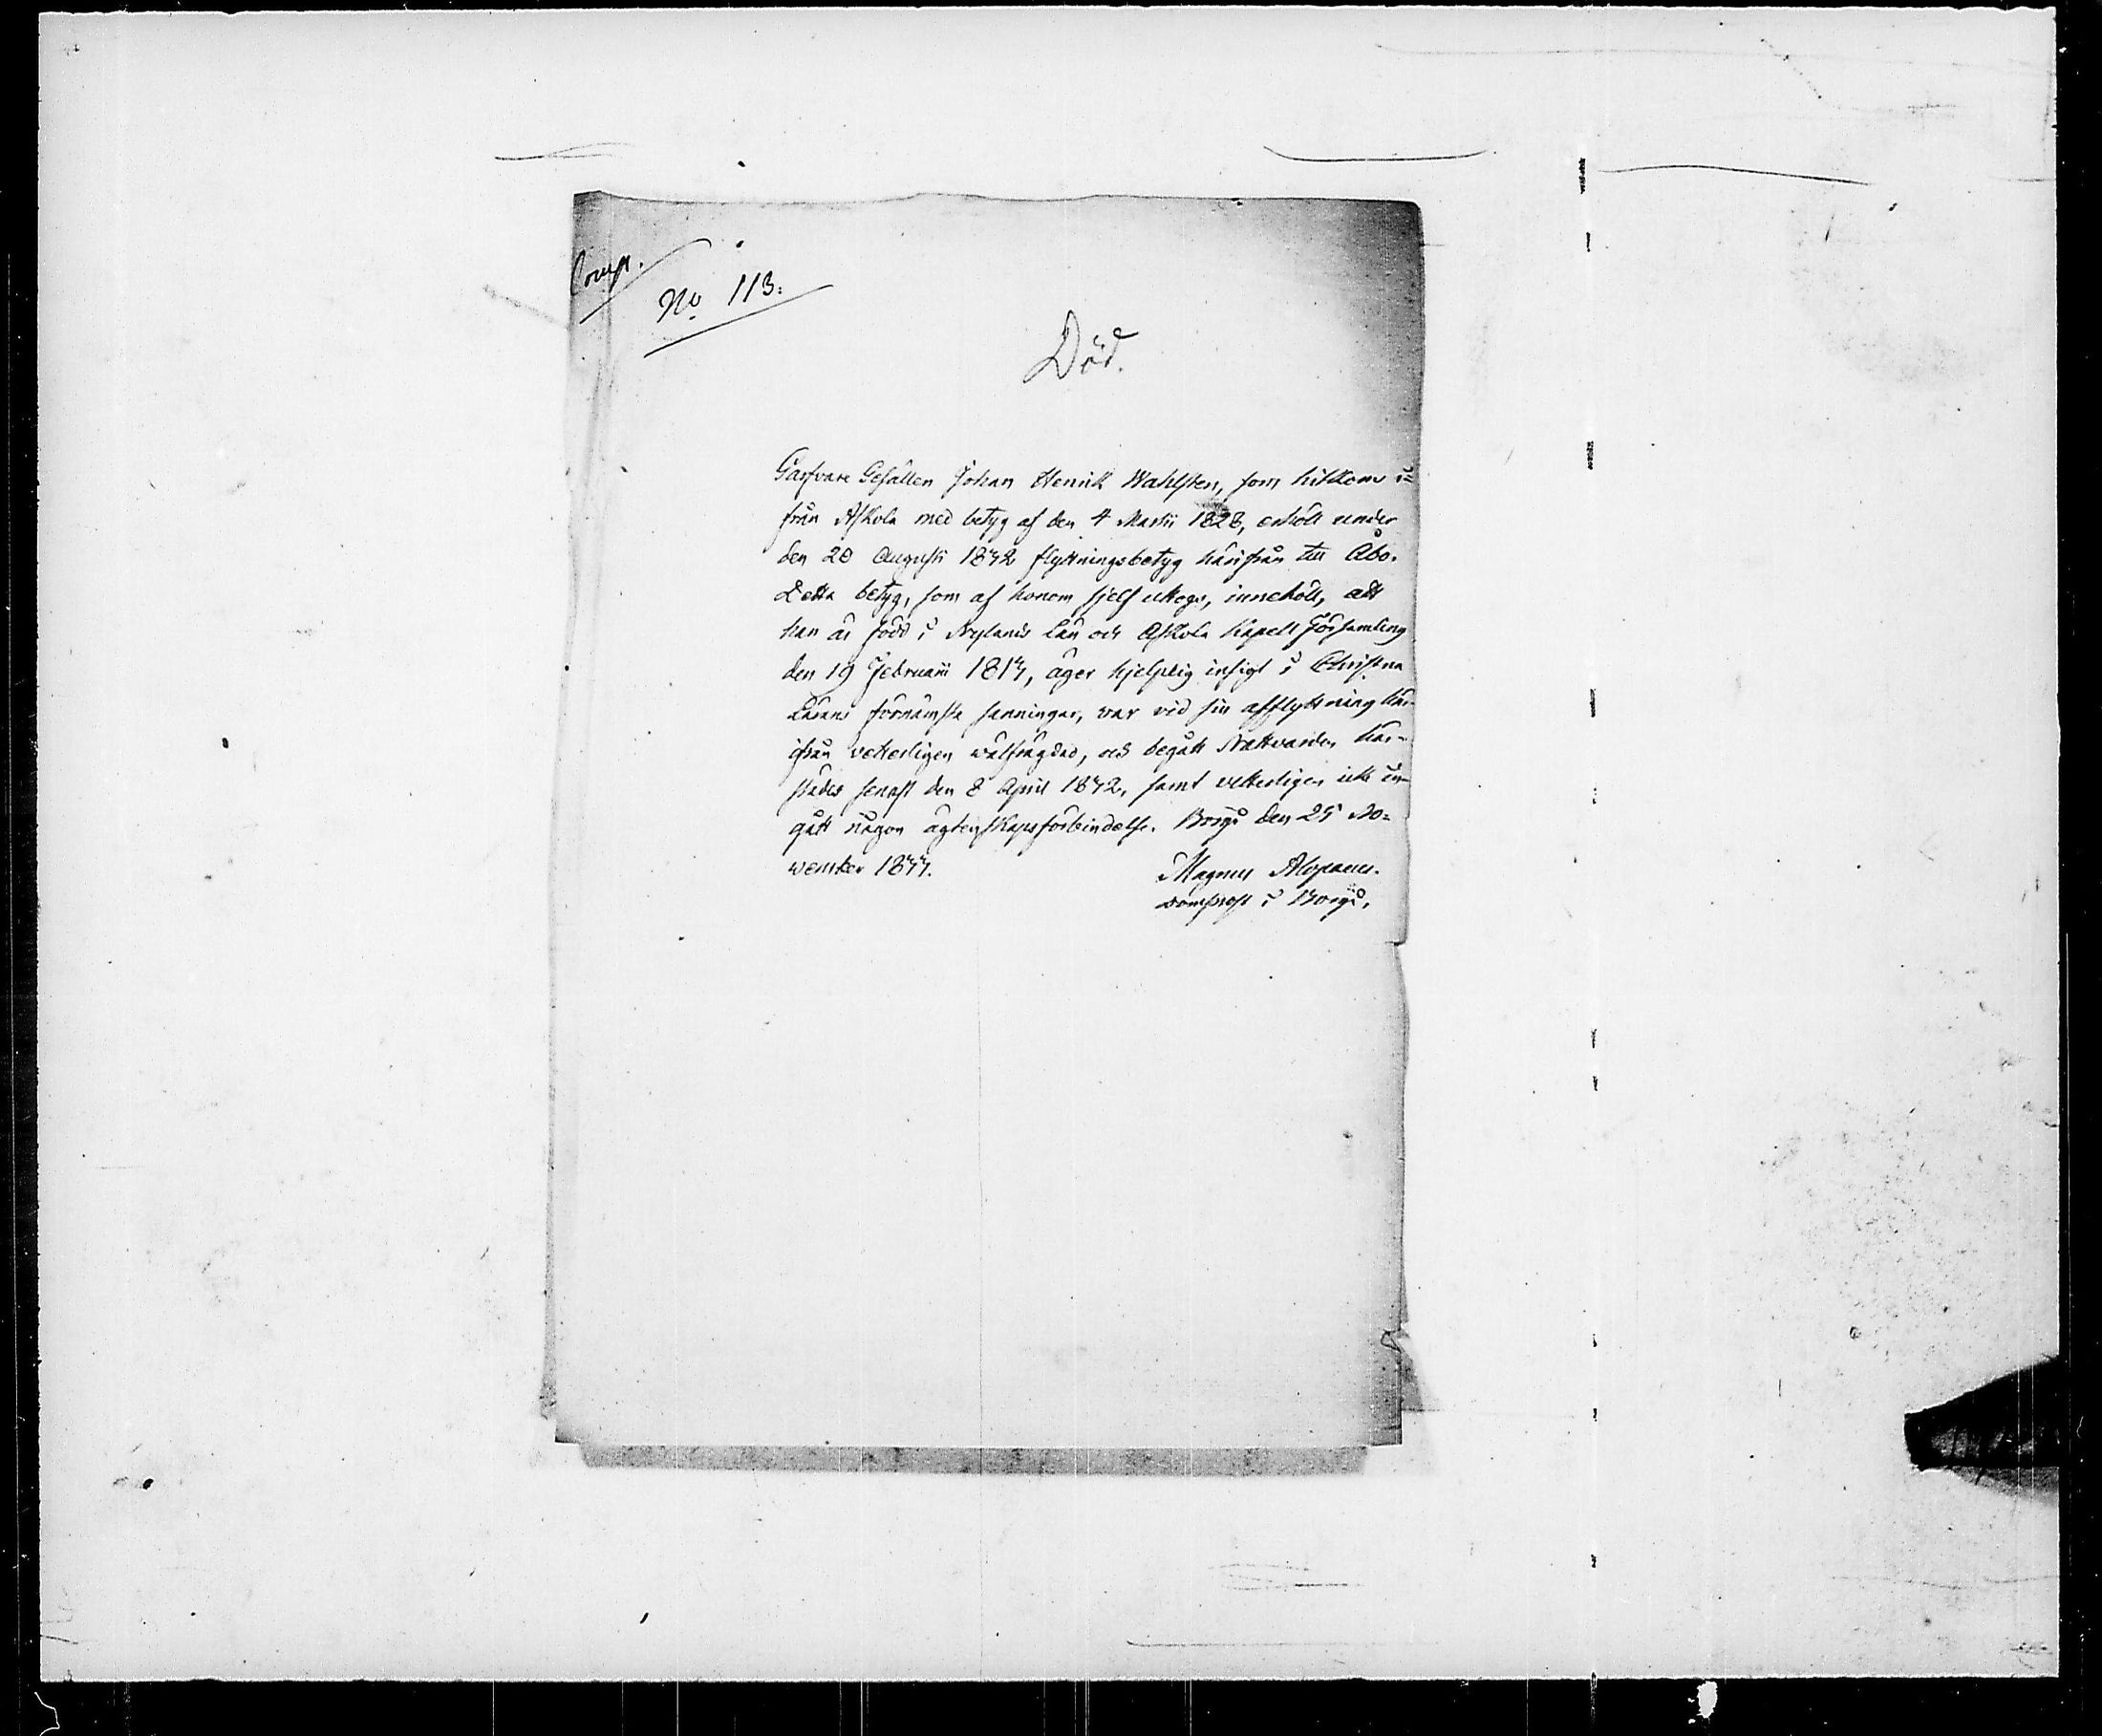 Comp.
No 113.
Död.
Garfvare Gesällen Johan Henrik Wahlsten, som hitkom i=
från Askola med betyg af den 4 Martii 1828, erhöll under
den 20 Augusti 1842 flyttningsbetyg härifrån till Åbo.
Detta betyg, som af honom sjelf uttogs, innehöll, att
han är född i Nylands Län och Askola Kapell Församling
den 19 Februarii 1814, äger hjelplig insigt i Christna
Lärans förnämsta sanningar, var vid sin afflyttning här-
ifrån veterligen välfrägdad, och begått Nattvarden här-
städes senast den 8 April 1842, samt veterligen icke in-
gått någon ägtenskapsförbindelse. Borgå den 25 No=
vember 1844.
Magnus Alopaeus.
domprost i Borgå.